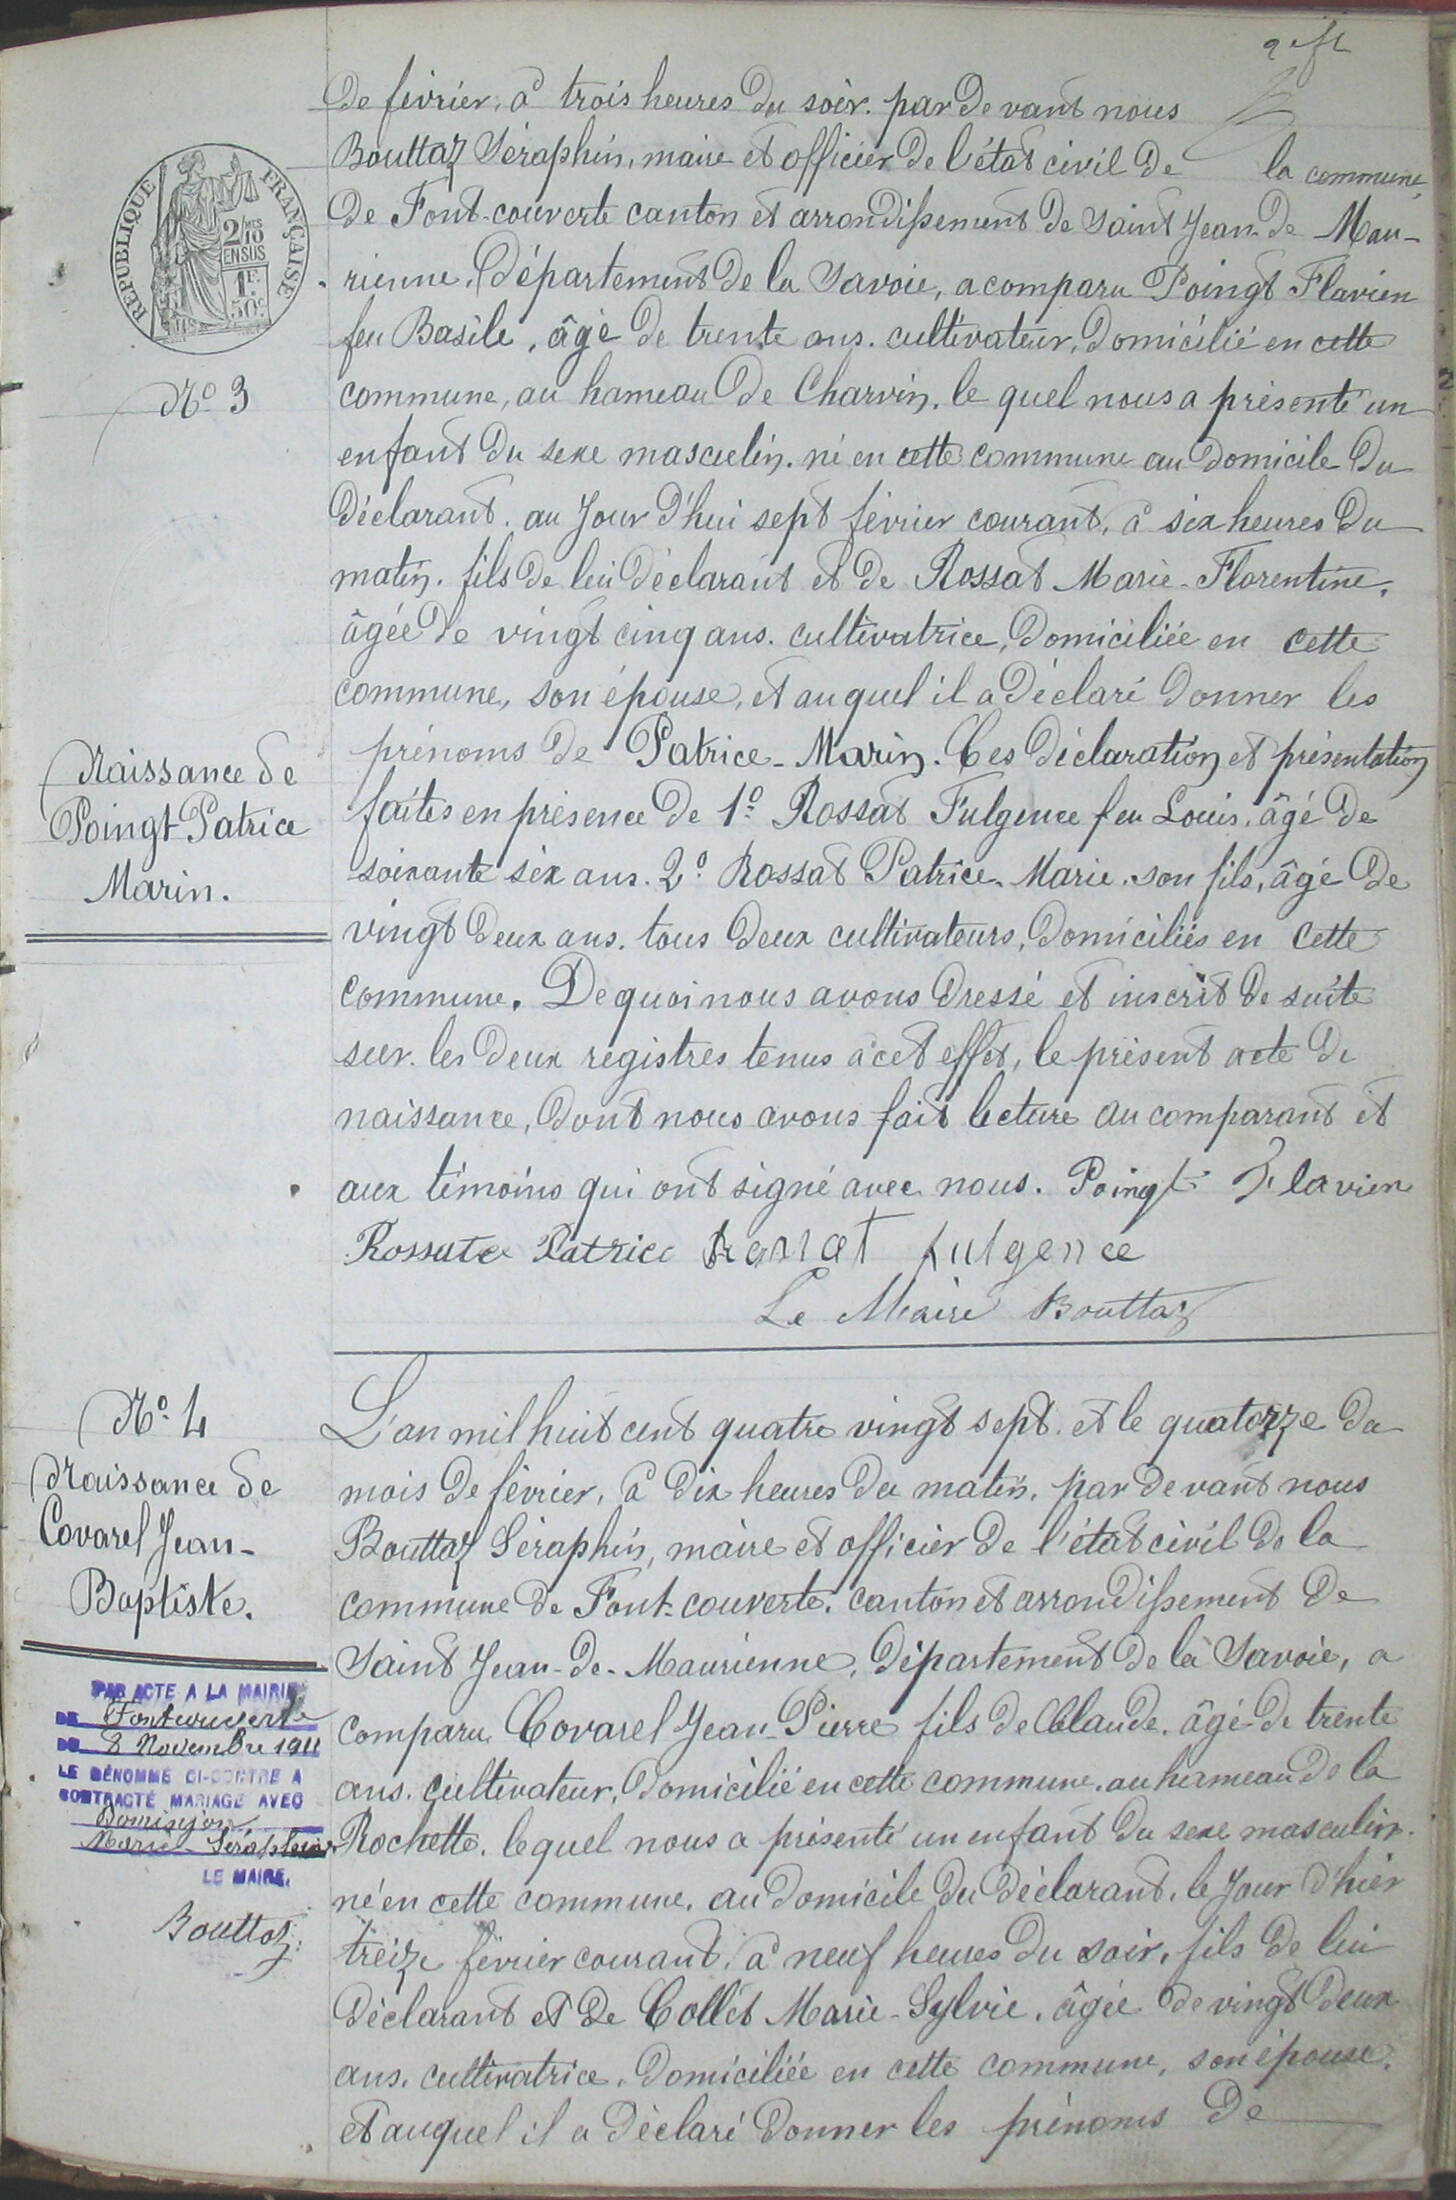 2e ft
de février, à trois heures du soir. par devant nous
Bouttaz Séraphin, maire et officier de l'état civil de la commune
de Font-couverte canton et arrondissement de Saint Jean-de Mau-
rienne, Département de la Savoie, a comparu Poingt Flavien
feu Basile, âgé de trente ans. cultivateur, domicilié en cette
commune, au hameau de Charvin. le quel nous a présenté un
enfant du sexe masculin. né en cette commune au domicile du
déclarant. au jour d'hui sept février courant, à six heures du
matin. fils de lui déclarant et de Rossat Marie-Florentine,
âgée de vingt cinq ans. cultivatrice, domiciliée en cette
commune, son épouse, et auquel il a déclaré donner les
prénoms de Patrice-Marin. Ces déclaration et présentation
faites en présence de 1º Rossat Fulgence feu Louis, âgé de
soixante six ans. 2º Rossat Patrice-Marie, son fils, âgé de
vingt deux ans. tous deux cultivateurs, domiciliés en cette
commune. De quoi nous avons dressé et inscrit de suite
sur les deux registres tenus à cet effet, le présent acte de
naissance, dont nous avons fait lecture au comparant et
aux témoins qui ont signé avec nous. Poingt Flavien
Rossat Patrice Rossat fulgence
Le Maire Bouttaz
RÉPUBLIQUE FRANÇAISE
2/10mes
EN SUS
1F
50c
No 3
Naissance de
Poingt Patrice
Marin.
No 4
Naissance de
Covarel Jean-
Baptiste.
PAR ACTE A LA MAIRIE
DE Fontcouverte
DU 8 Novembre 1911
LE DÉNOMMÉ CI-CONTRE A
CONTRACTÉ MARIAGE AVEC
Dominjon
Marie-Séraphine
LE MAIRE,
Bouttaz
L'an mil huit cent quatre vingt sept. et le quatorze du
mois de février, à dix heures du matin, par devant nous
Bouttaz Séraphin, maire et officier de l'état civil de la
commune de Font-couverte, canton et arrondissement de
Saint Jean-de-Maurienne, département de la Savoie, a
comparu Covarel Jean-Pierre fils de Claude, âgé de trente
ans. cultivateur, domicilié en cette commune. au hameau de la
Rochette. lequel nous a présenté un enfant du sexe masculin.
né en cette commune. au domicile du déclarant, le jour d'hier
treize février courant, à neuf heures du soir, fils de lui
déclarant et de Collet Marie-Sylvie, âgée de vingt deux
ans, cultivatrice, domiciliée en cette commune, son épouse,
et auquel il a déclaré donner les prénoms de